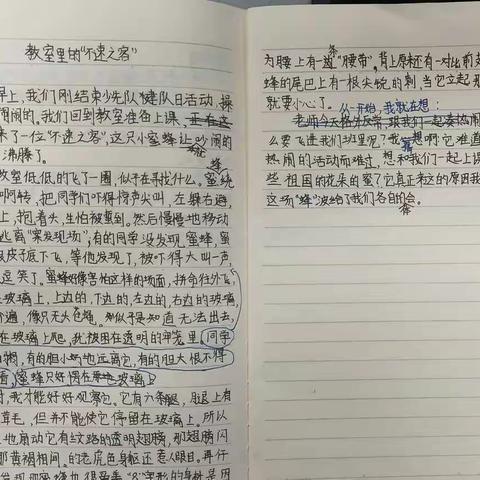 教室里的“不速之客”
早上，我们刚结束少先队建队日活动，操
闹闹的。我们回到教室准备上课，正在这
来了一位“不速之客”，这只小蜜蜂让吵闹的
沸腾了。
教室低低的飞了一圈，似乎在寻找什么。蜜蜂
啊转，把同学们吓得惊声尖叫，左躲右避，
上，抱着头，生怕被蜇到。然后慢慢地移动
逃离“案发现场”，有的同学没发现蜜蜂，蜜
皮子底下飞，等他发现了，被吓得大叫一声，
逗笑了。蜜蜂好像害怕这样的场面，拼命往外飞，
玻璃上，上边的，下边的，左边的，右边的玻璃，
遍，像只无头苍蝇。似乎是知道无法出去，
在玻璃上爬，我被困在透明的牢笼里。同学
有的胆小的远离它，有的胆大恨不得
看，蜜蜂只好停在玻璃上
我才能好好观察它。它有六条腿，腿上有
茸毛，但并不能使它停留在玻璃上。所以
地扇动它有纹路的透明翅膀，那翅膀闪
那黄褐相间的老虎色身躯还惹人眼目。再仔
发现蜜蜂
为腰上有一道条“腰带”，背上原来还有一对
蜂的尾巴上有一根尖锐的刺，当它立起
就要小心了。从一开始，我就在想：
老师今天
么要飞进我们班里呢？我猜想啊它难道
热闹的活动而难过，想和我们一起上课
些祖国的花朵的蜜？它真正来这的原因我
这场“蜂”波给了我们各自的